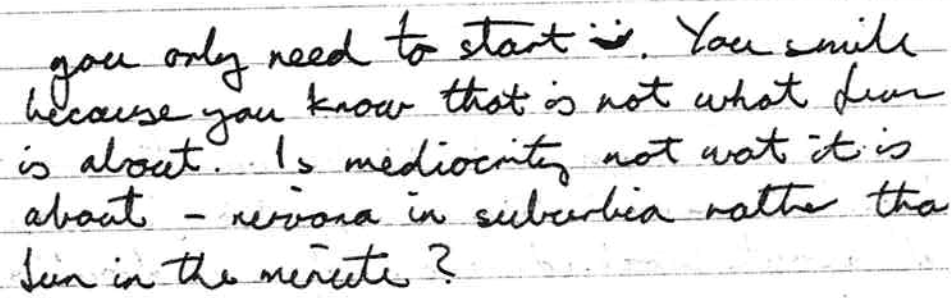 you only need to start :). You smile
because you know that is not what fun
is about. Is mediocrity not wat it is
about - nervana in suburbia rather tha
fun in the minute?